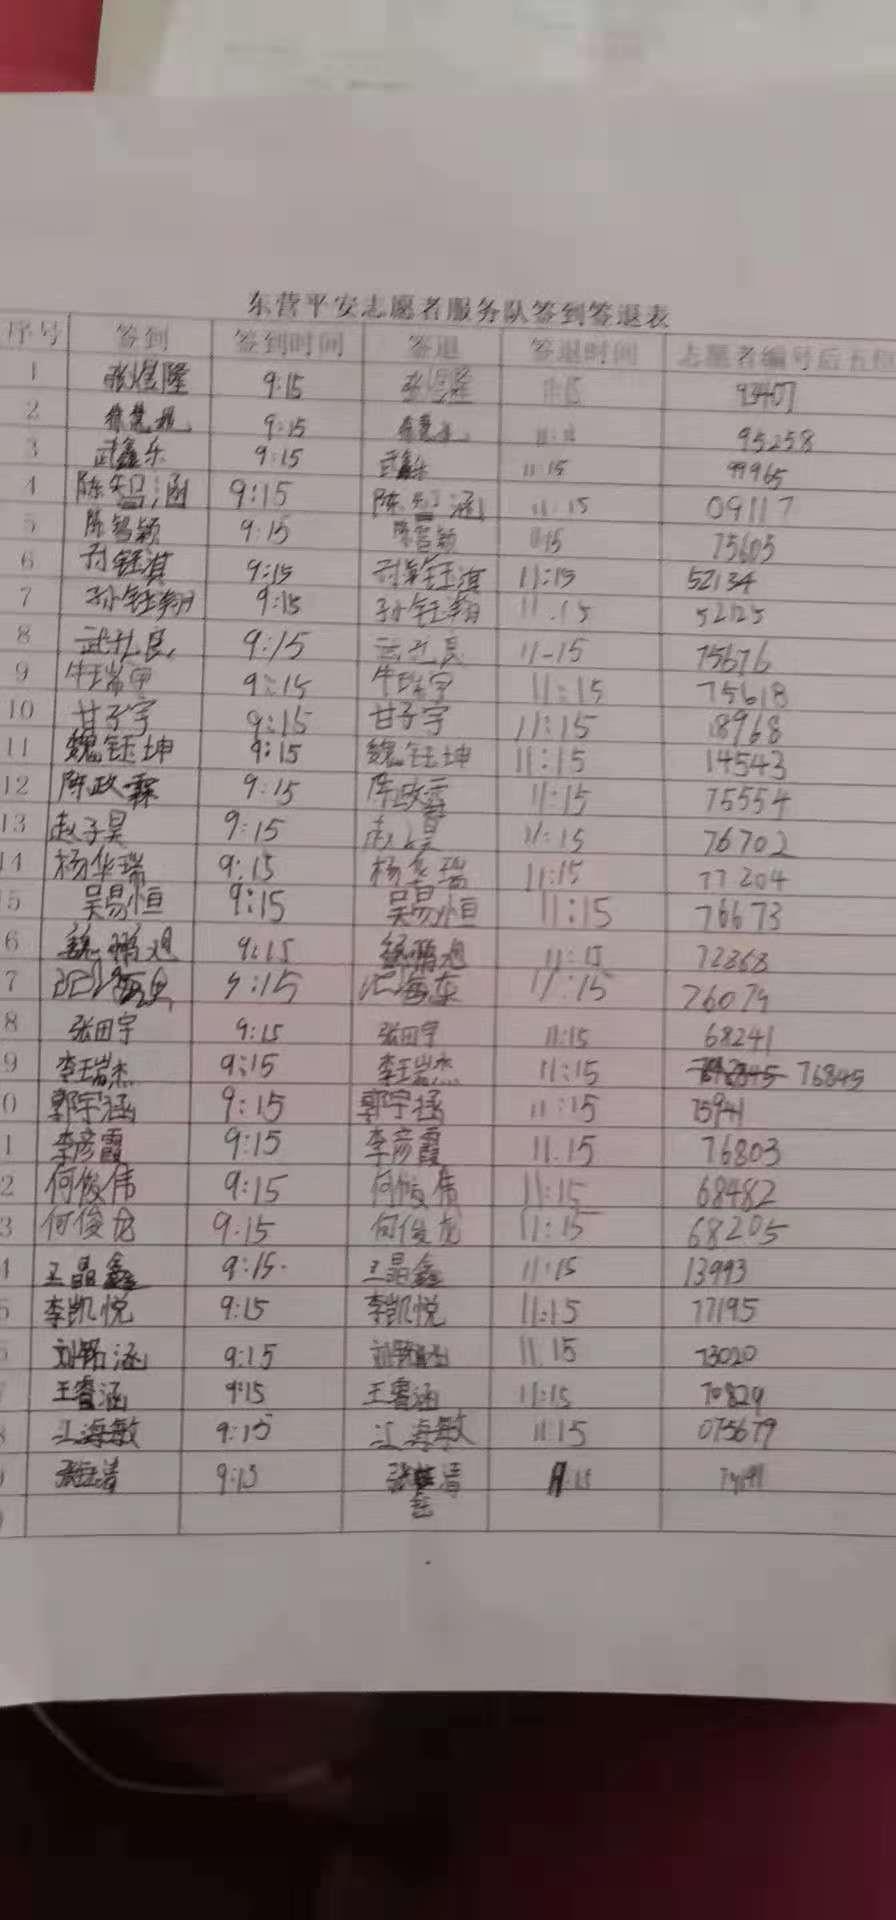 东营平安志愿者服务队签到签退表
序号 签到 签到时间 签退 签退时间 志愿者编号后五位
1 张煜隆 9:15 张煜隆 11:15 93407
2 9:15 95258
3 武鑫乐 9:15 武鑫乐 11:15 99965
4 陈智涵 9:15 陈智涵 11:15 09117
5 陈智颖 9:15 陈智颖 11:15 75605
6 孙钰淇 9:15 孙钰淇 11:15 52134
7 孙钰翔 9:15 孙钰翔 11.15 52125
8 武孔良 9:15 武孔良 11-15 75676
9 牛瑞宇 9:15 牛瑞宇 11:15 75618
10 甘子宇 9:15 甘子宇 11:15 18968
11 魏钰坤 9:15 魏钰坤 11:15 14543
12 陈政霖 9:15 陈政霖 11:15 75554
13 赵子昊 9:15 赵子昊 11:15 76702
14 杨华瑞 9:15 杨华瑞 11:15 77204
5 吴易恒 9:15 吴易恒 11:15 76673
6 魏鹏旭 9:15 魏鹏旭 11:15 72368
7 9:15 江海东 11:15 76079
8 张田宇 9:15 张田宇 11:15 68241
9 李瑞杰 9:15 李瑞杰 11:15 76845
0 郭宇涵 9:15 郭宇涵 11:15 75941
1 李彦霞 9:15 李彦霞 11.15 76803
2 何俊伟 9:15 何俊伟 11:15 68482
3 何俊龙 9.15 何俊龙 11:15 68205
4 王晶鑫 9:15 王晶鑫 11:15 13993
5 李凯悦 9:15 李凯悦 11:15 77195
刘铭涵 9:15 刘铭涵 11 15 73020
王睿涵 9:15 王睿涵 11:15 70829
江海敏 9:15 江海敏 11:15 075679
9:15